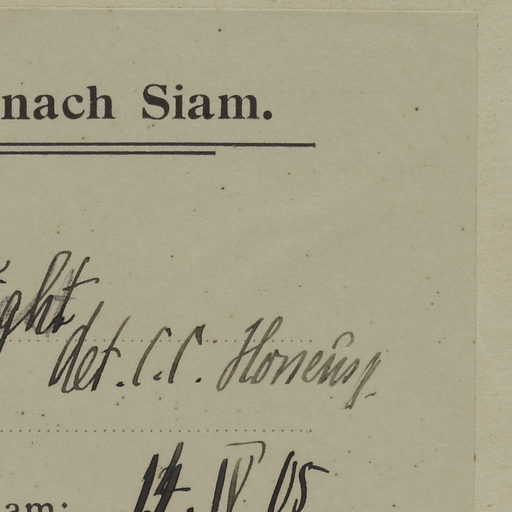 nach Siam.
ght
det. C. C. Hosseusz.
am: 14. IV 05